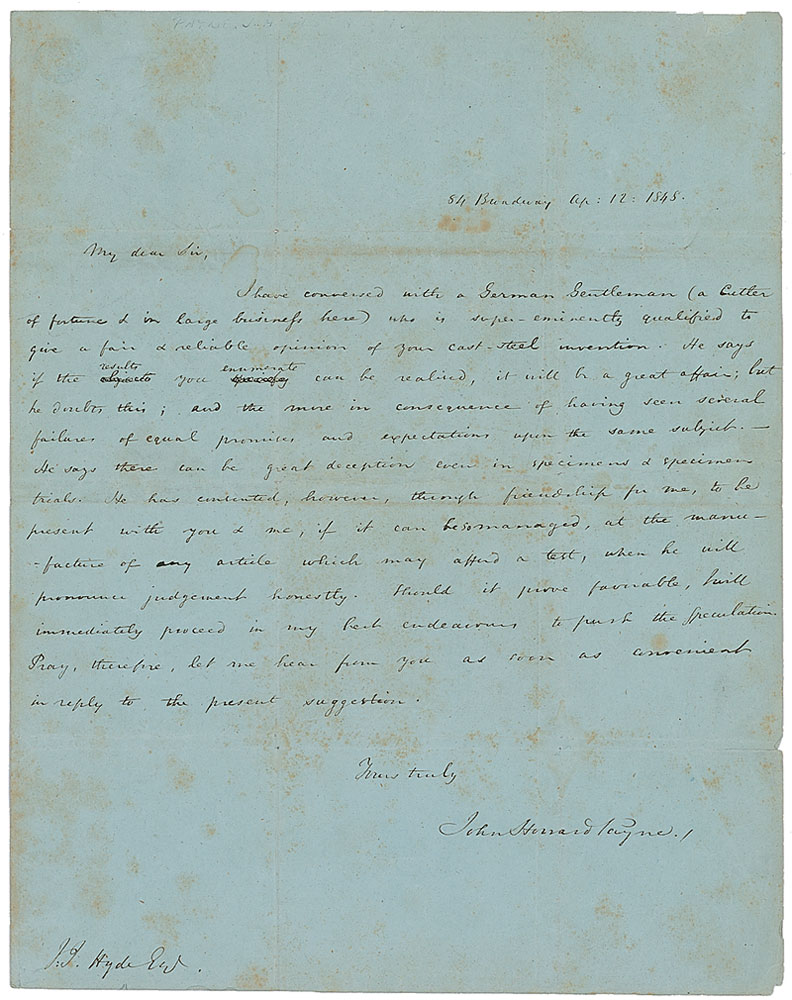 84 Broadway Ap: 12: 1848.
My dear Sir,
I have conversed with a German Gentleman (a Cutler
of fortune & in large business here) who is super-eminently qualified to
give a fair & reliable opinion of your cast-steel invention. He says
if the results you enumerate can be realised, it will be a great affair; but
he doubts this; and the more in consequence of having seen several
failures of equal promises and expectations upon the same subject. —
He says there can be great deception even in specimens & specimen
trials. He has consented, however, through friendship for me, to be
present with you & me, if it can be so managed, at the manu-
-facture of any article which may afford a test, when he will
pronounce judgement honestly. Should it prove favorable, I will
immediately proceed in my best endeavours to push the speculation.
Pray, therefore, let me hear from you as soon as convenient
in reply to the present suggestion.
Yours truly
John Howard Payne.
Hyde Esq.